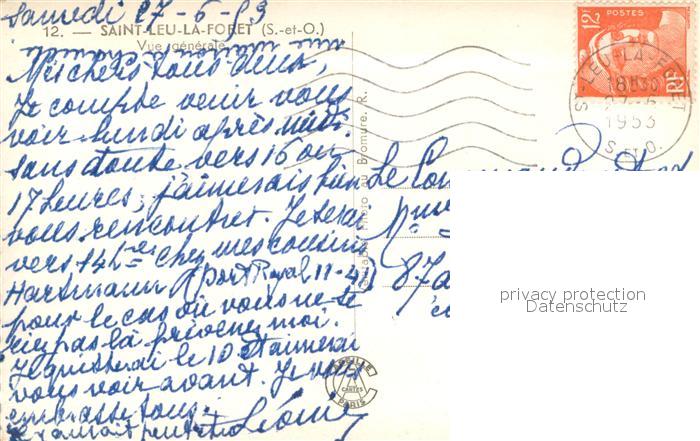 Samedi 27-6-53
12. — SAINT-LEU-LA-FORET (S.-et-O.)
Vue générale
Mes chers tous deux,
Je compte venir vous
voir lundi après midi
sans doute vers 16 ou
17 heures, j'aimerais bien
vous rencontrer. Je serai
vers 14h chez mes cousins
Hartmann (Port Royal 11-41)
pour le cas où vous ne se
riez pas là prévenez moi.
Je quitterai le 10 et aimerai
vous voir avant. Je vous
embrasse tous.
Léonie
Véritable Photo au Bromure. R.
ABEILLE
CARTES
PARIS
12F
POSTES
RF
ST-LEU-LA-FORET
18H30
27-6
1953
S.-ET-O.
Le
Mme
87
privacy protection
Datenschutz